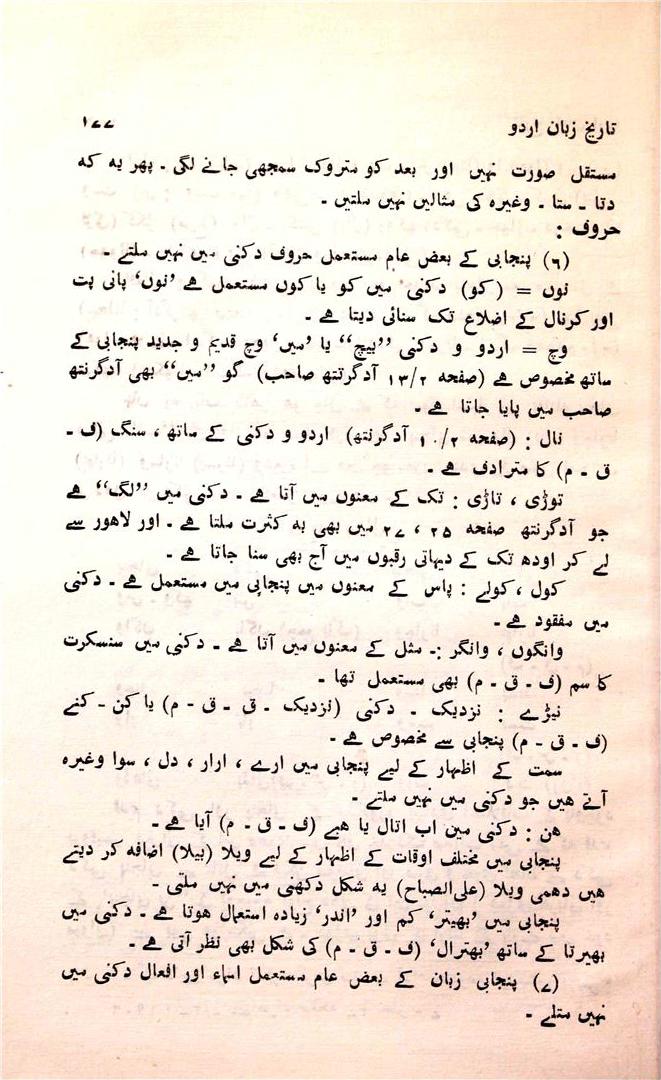 تاریخ زبان اردو ۱۷۷
مستقل صورت نہیں اور بعد کو متروک سمجھی جانے لگی ۔ پھر یہ کہ
دتا ۔ ستا ۔ وغیرہ کی مثالیں نہیں ملتیں ۔
حروف :
(۶) پنجابی کے بعض عام مستعمل حروف دکنی میں نہیں ملتے ۔
نوں = (کو) دکنی میں کو یا کوں مستعمل ہے ’نوں‘ پانی پت
اور کرنال کے اضلاع تک سنائی دیتا ہے ۔
وچ = اردو و دکنی ’’بیچ‘‘ یا ’میں‘ وچ قدیم و جدید پنجابی کے
ساتھ مخصوص ہے (صفحہ ۱۳/۲ آدگرتتھ صاحب) گو ’’میں‘‘ بھی آدگرنتھ
صاحب میں پایا جاتا ہے ۔
نال : (صفحہ ۱۰/۲ آدگرنتھ) اردو و دکنی کے ساتھ ، سنگ (ف ۔
ق ۔ م) کا مترادف ہے ۔
توڑی ، تاڑی : تک کے معنوں میں آتا ہے ۔ دکنی میں ’’لگ‘‘ ہے
جو آدگرنتھ صفحہ ۲۵ ، ۲۷ میں بھی بہ کثرت ملتا ہے ۔ اور لاھور سے
لے کر اودھ تک کے دیہاتی رقبوں میں آج بھی سنا جاتا ہے ۔
کول ، کولے : پاس کے معنوں میں پنجابی میں مستعمل ہے ۔ دکنی
میں مفقود ہے ۔
وانگوں ، وانگر :۔ مثل کے معنوں میں آتا ہے ۔ دکنی میں سنسکرت
کا سم (ف ۔ ق ۔ م) بھی مستعمل تھا ۔
نیڑے : نزدیک ۔ دکنی (نزدیک ۔ ق ۔ ق ۔ م) یا کن ۔ کنے
(ف ۔ ق ۔ م) پنجابی سے مخصوص ہے ۔
سمت کے اظہار کے لیے پنجابی میں ارے ، ارار ، دل ، سوا وغیرہ
آتے ھیں جو دکنی میں نہیں ملتے ۔
ھن : دکنی مین اب اتال یا ھبے (ف ۔ ق ۔ م) آیا ہے ۔
پنجابی میں مختلف اوقات کے اظہار کے لیے ویلا (بیلا) اضافہ کر دیتے
ھیں دھمی ویلا (علی‌الصباح) یہ شکل دکھنی میں نہیں ملتی ۔
پنجابی میں ’بھیتر‘ کم اور ’اندر‘ زیادہ استعمال ہوتا ہے ۔ دکنی میں
بھیرتا کے ساتھ ’بھترال‘ (ف ۔ ق ۔ م) کی شکل بھی نظر آتی ہے ۔
(۷) پنجابی زبان کے بعض عام مستعمل اسماء اور افعال دکنی میں
نہیں متلے ۔